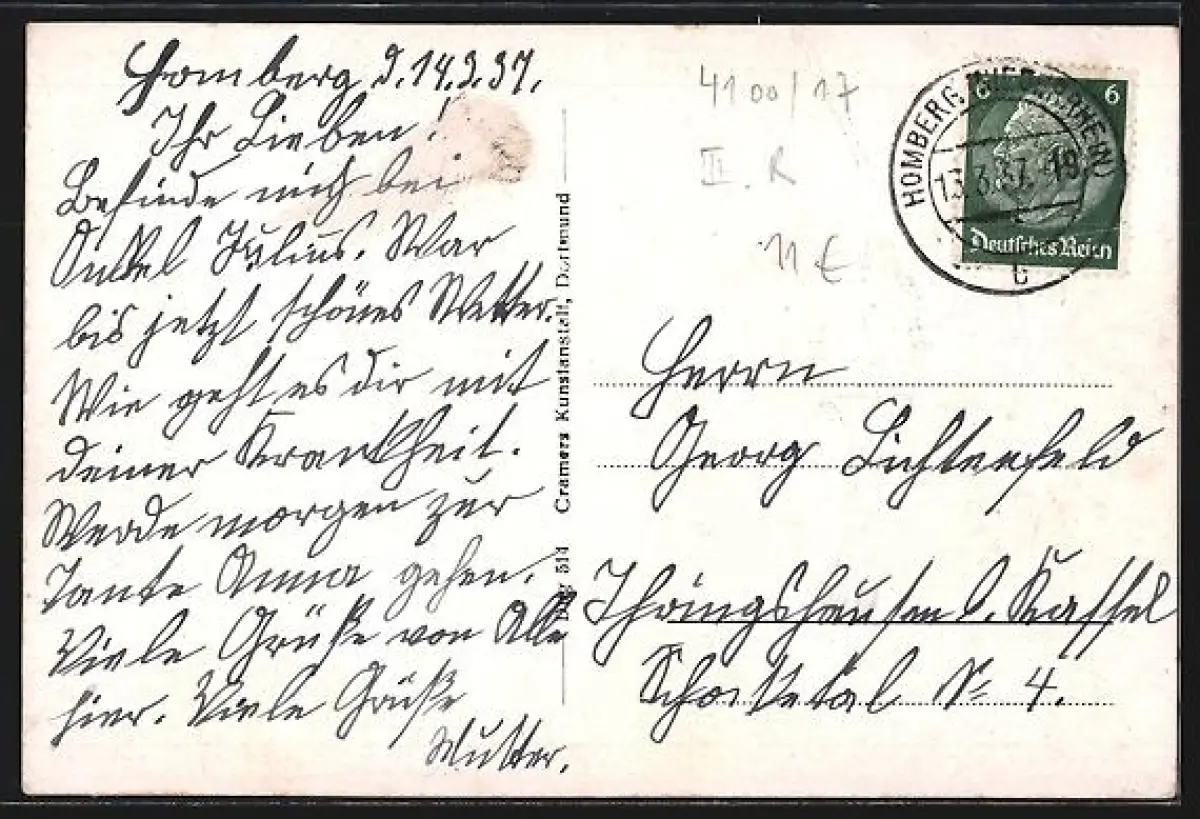 Homberg d. 14.3.37.
Ihr Lieben!
Befinde mich bei
Onkel Julius. War
bis jetzt schönes Wetter.
Wie geht es dir mit
deiner Krankheit.
Werde morgen zur
Tante Anna gehen.
Viele Grüße von Alle
hier. Viele Grüße
Mutter.
Cramers Kunstanstalt, Dortmund
514
4100/17
III. R
11 €
HOMBERG (NIEDERRHEIN)
13.3.37.-19
6
6
Deutsches Reich
Herrn
Georg Lichtenfeld
b. Kassel
N° 4.